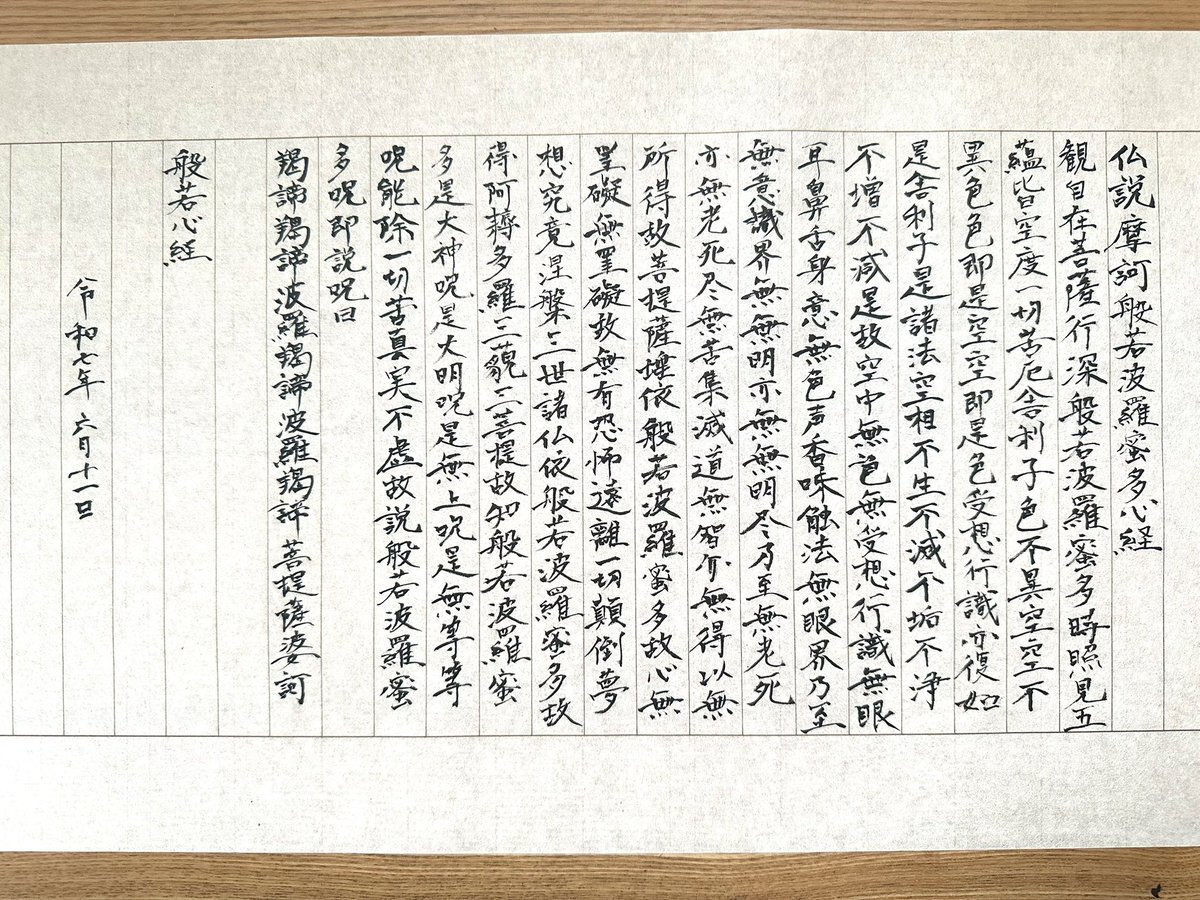 仏説摩訶般若波羅蜜多心経
観自在菩薩行深般若波羅蜜多時照見五
蘊皆空度一切苦厄舎利子色不異空空不
異色色即是空空即是色受想行識亦復如
是舎利子是諸法空相不生不滅不垢不浄
不増不減是故空中無色無受想行識無眼
耳鼻舌身意無色声香味触法無眼界乃至
無意識界無無明亦無無明尽乃至無老死
亦無老死尽無苦集滅道無智亦無得以無
所得故菩提薩埵依般若波羅蜜多故心無
罣礙無罣礙故無有恐怖遠離一切顛倒夢
想究竟涅槃三世諸仏依般若波羅蜜多故
得阿耨多羅三藐三菩提故知般若波羅蜜
多是大神呪是大明呪是無上呪是無等等
呪能除一切苦真実不虚故説般若波羅蜜
多呪即説呪曰
羯諦羯諦波羅羯諦波羅羯諦 菩提薩婆訶
般若心経
令和七年 六月十一日